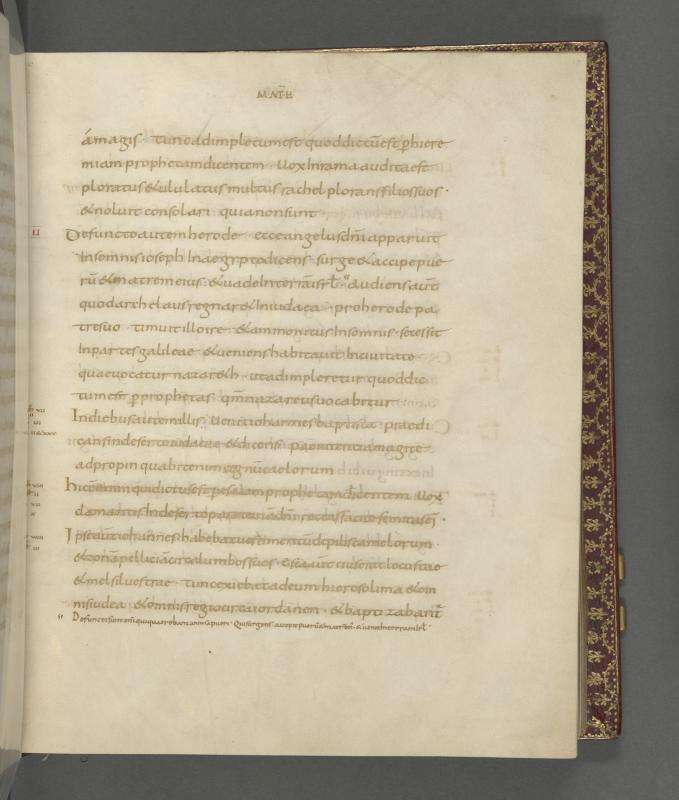 MATH
a magis · tunc adimpletum est quod dictū est per hiere
miam prophetam dicentem · Vox In rama audita est
ploratus & ululatus multus rachel plorans filios suos ·
& noluit consolari quia non sunt
II
Defuncto autem herode · ecce angelus dn̄i apparuit
In somnis ioseph In aegypto dicens · surge & accipe pue
rū & matrem eius · & uade In terrā isrł · audiens aut̄
quod archelaus regnar& In iudaea · pro herode pa
tre suo · timuit illo ire · & ammonitus In somnis · secessit
In partes galileae · & ueniens habitauit In ciuitate
quae uocatur nazar&h · ut adimpleretur quod dic
tum est per prophetas · qm̄ nazareus uocabitur
In diebus autem illis · uenit iohannes baptista · praedi
cans In deserto iudaeae · & dicens · paenitentiam agite
adpropinquabit enim regnū caelorum
hic est enim qui dictus est per esaiam prophetam dicentem · Vox
clamantis In deserto parate uiā dn̄i rectas facite semitas eī ·
Ipse aut̄ iohannes habebat uestimentū de pilis camelorum ·
& zonā pelliciā circa lumbos suos · esca aut̄ eius erat locustae
& mel siluestrae · tunc exiebat ad eum hierosolima & om
nis iudea · & omnis regio circa iordanen · & baptizabant̄
Defuncti sunt enī qui quaerebant animā pueri · Qui surgens accepit puerū & matrē eī · & uenit In terram isrł ·